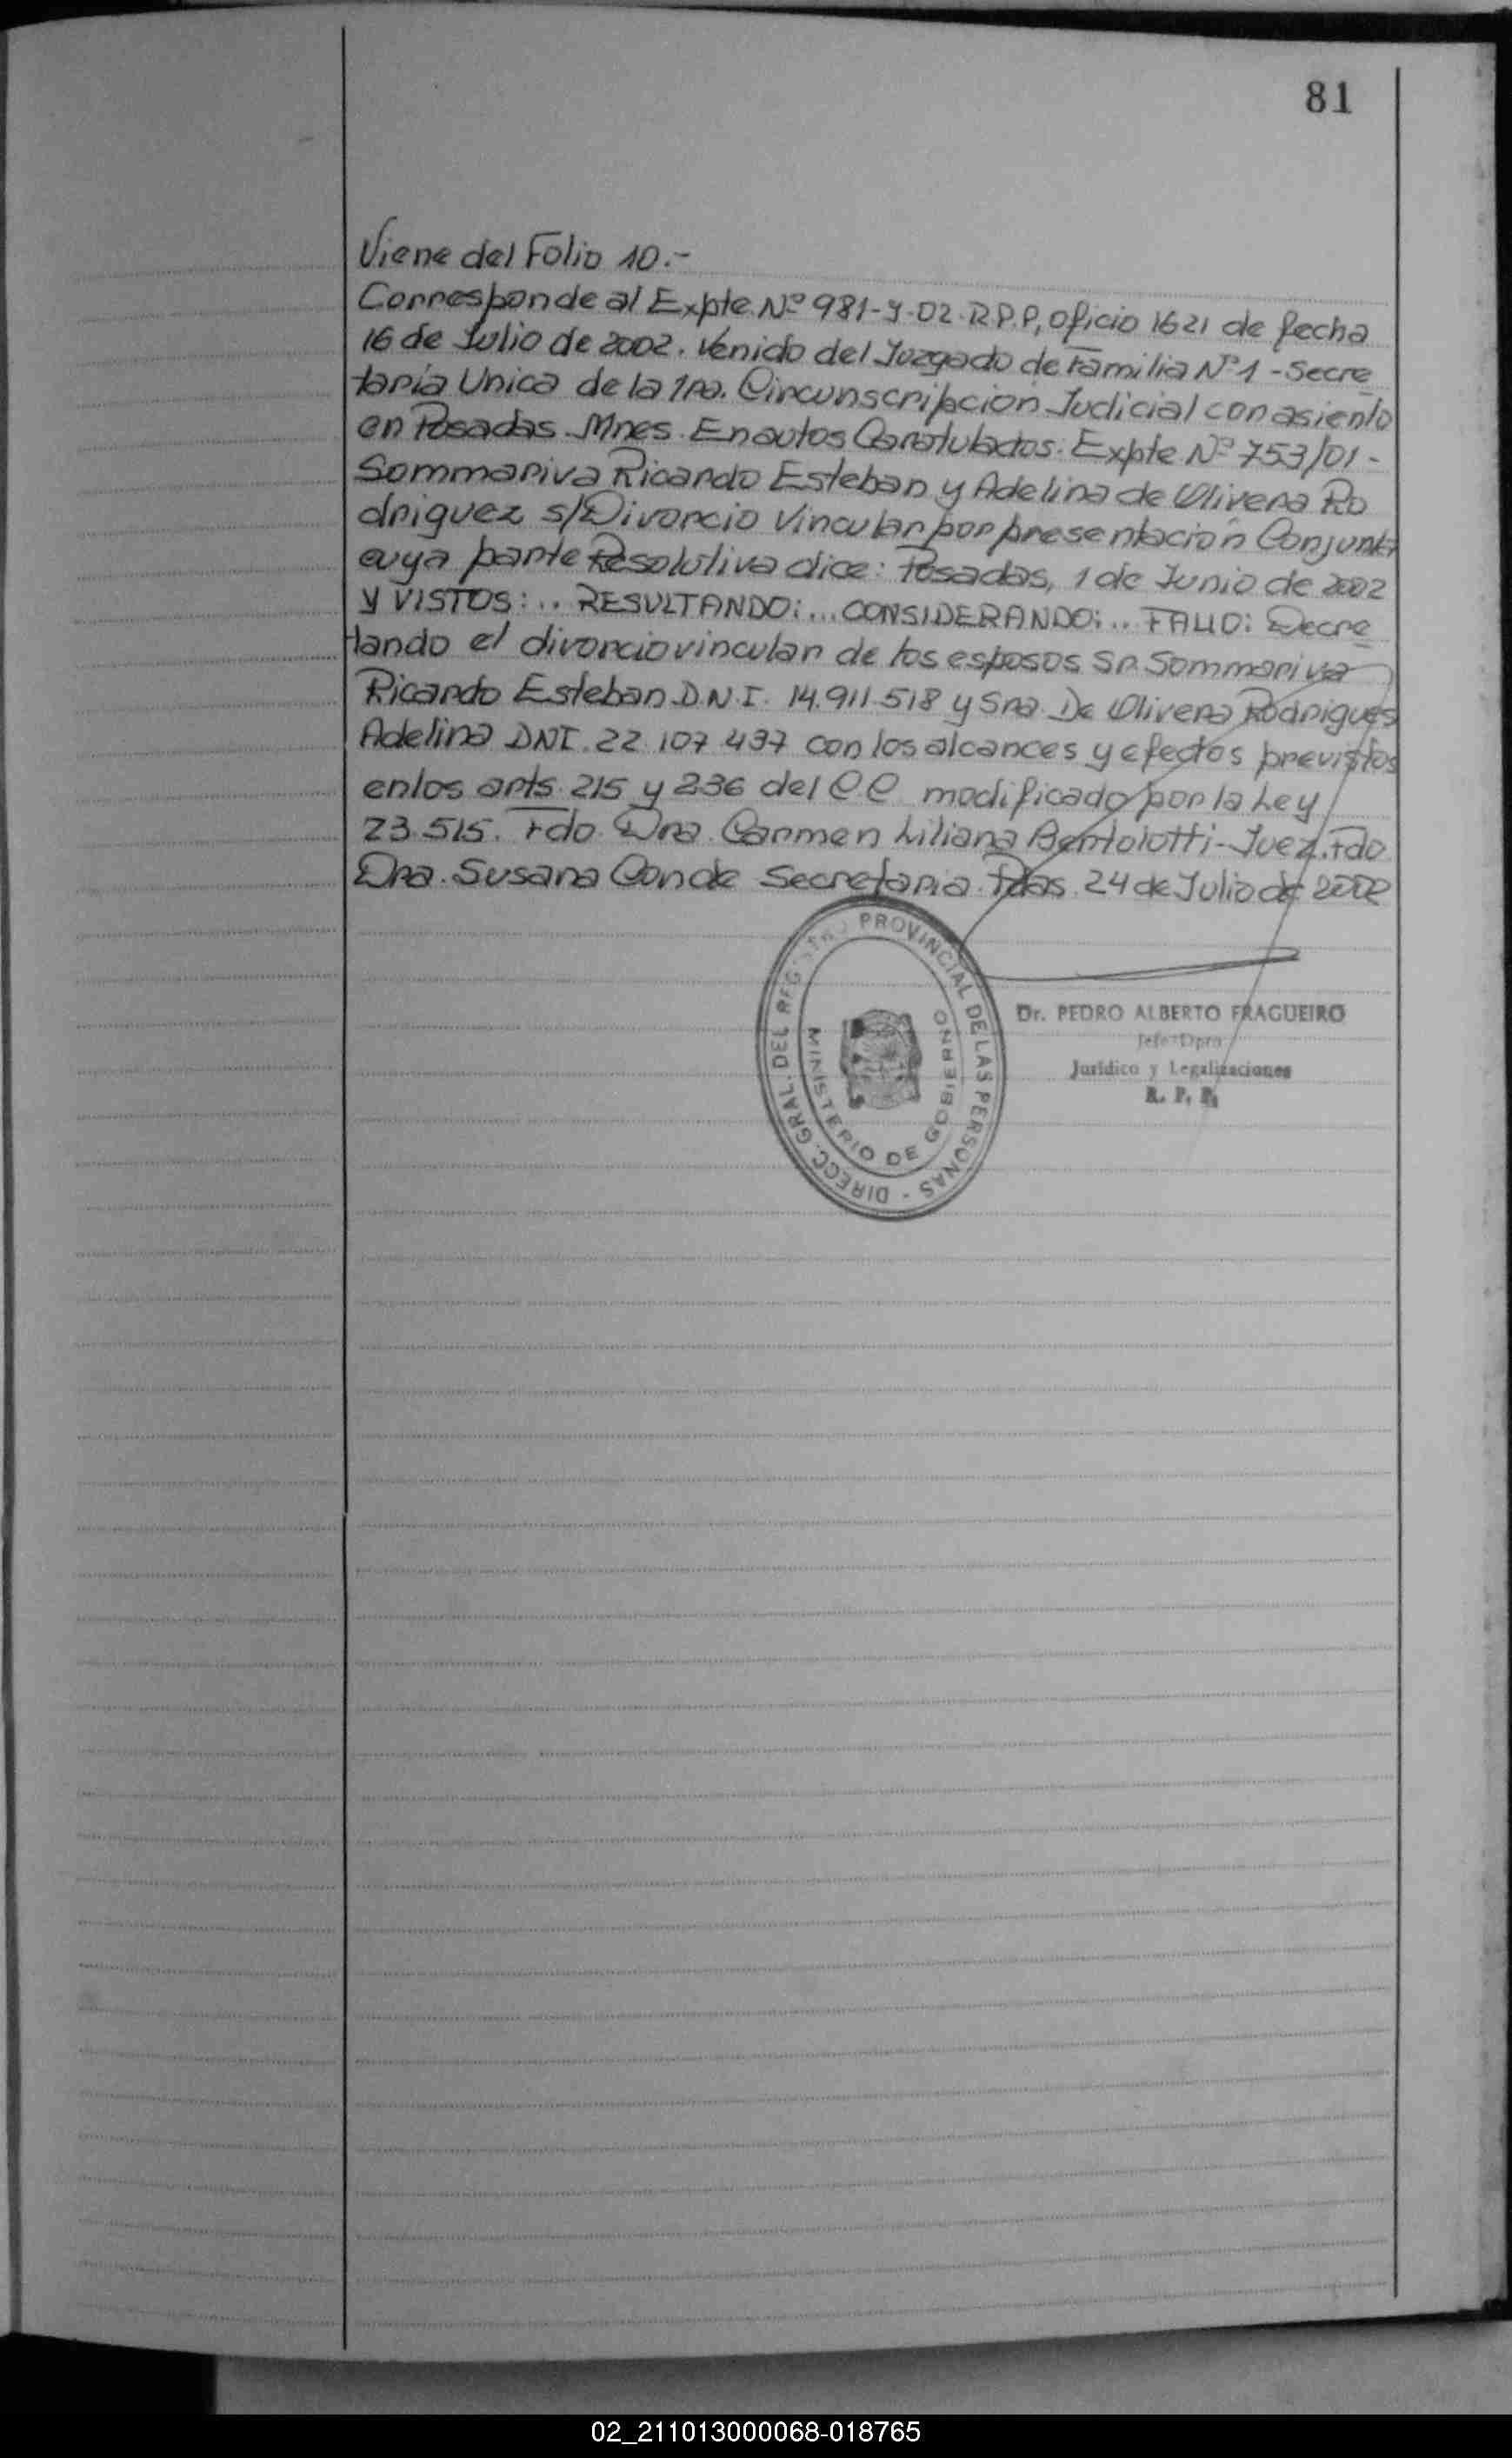 81
Viene del Folio 10.-
Corresponde al Expte. Nº 981-Y-02-R.P.P, oficio 1621 de fecha
16 de Julio de 2002. Venido del Juzgado de Familia Nº 1 - Secre
taría Unica de la 1ra. Circunscripción Judicial con asiento
en Posadas Mnes. En autos Caratulados: Expte Nº 753/01 -
Sommariva Ricardo Esteban y Adelina de Olivera Ro
driguez s/Divorcio Vincular por presentación Conjunta
cuya parte Resolutiva dice: Posadas, 1 de Junio de 2002
Y VISTOS: .. RESULTANDO: ... CONSIDERANDO: ... FALLO: Decre
tando el divorcio vincular de los esposos Sr. Sommariva
Ricardo Esteban D.N.I. 14.911.518 y Sra. De Olivera Rodrigues
Adelina DNI. 22.107.437 con los alcances y efectos previstos
en los arts. 215 y 236 del CC modificado por la Ley
23.515. Fdo. Dra. Carmen Liliana Bertolotti - Juez. Fdo
Dra. Susana Conde Secretaria. Pdas. 24 de Julio de 2002
DIRECC. GRAL. DEL REGISTRO PROVINCIAL DE LAS PERSONAS -
MINISTERIO DE GOBIERNO
Dr. PEDRO ALBERTO FRAGUEIRO
Jefe Dpto
Jurídico y Legalizaciones
R. P. P.
02_211013000068-018765